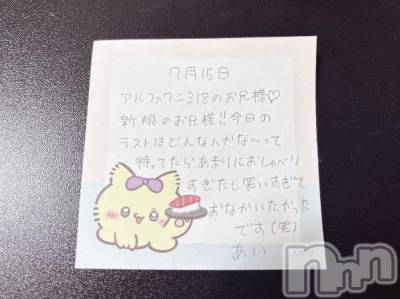 7月15日
アルファワニ318のお兄様♡
新規のお兄様!!今日の
ラストはどんな人かな〜って
待ってたらあまりにおしゃべり
すぎたし笑いすぎて
おなかいたかった
です(笑)
あい
Nnn